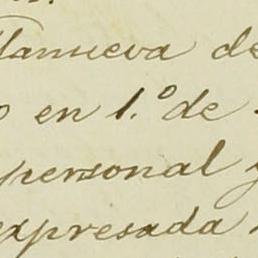 llanueva de
o en 1.º de
personal y
expresada